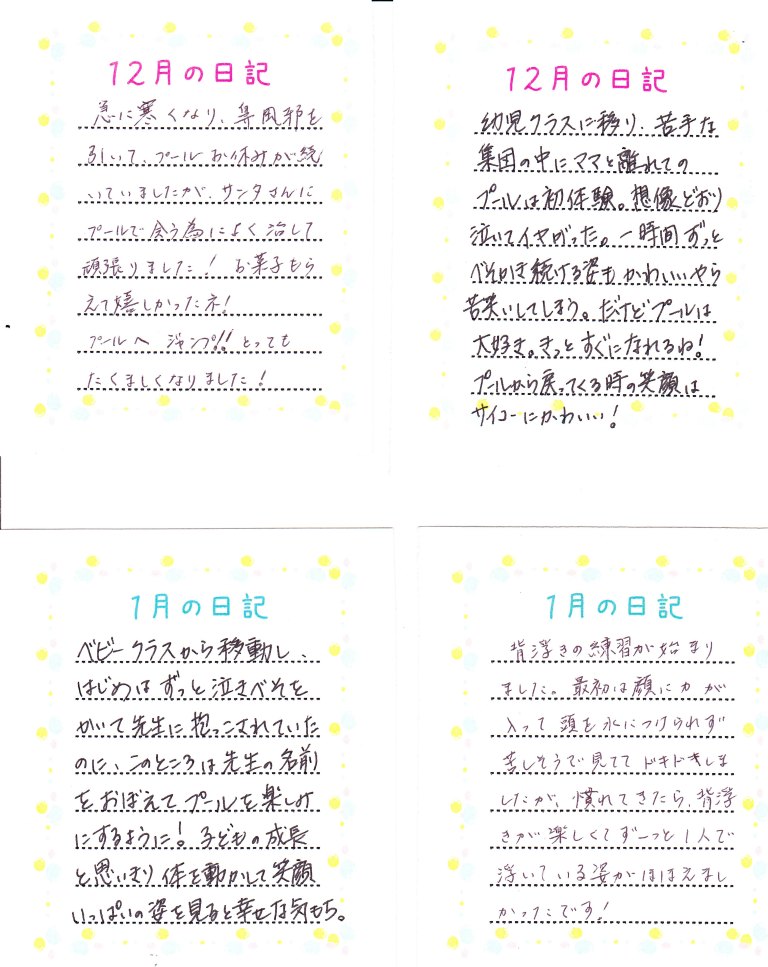 12月の日記
急に寒くなり、鼻風邪を
引いて、プールお休みが続
いていましたが、サンタさんに
プールで会う為によく治して
頑張りました！お菓子もら
えて嬉しかったネ！
プールへ ジャンプ!! とっても
たくましくなりました！
12月の日記
幼児クラスに移り、苦手な
集団の中にママと離れての
プールは初体験。想像どおり
泣いてイヤがった。一時間ずっと
べそかき続ける姿もかわいいやら
苦笑いしてしまう。だけどプールは
大好き。きっとすぐになれるね！
プールから戻ってくる時の笑顔は
サイコーにかわいい！
1月の日記
ベビークラスから移動し、
はじめはずっと泣きべそを
かいて先生に抱っこされていた
のに、このところは先生の名前
をおぼえてプールを楽しみ
にするように！子どもの成長
と思いきり体を動かして笑顔
いっぱいの姿を見ると幸せな気もち。
1月の日記
背浮きの練習が始まり
ました。最初は顔に力が
入って頭を水につけられず
苦しそうで見ててドキドキしま
したが、慣れてきたら、背浮
きが楽しくてずーっと1人で
浮いている姿がほほえまし
かったです！